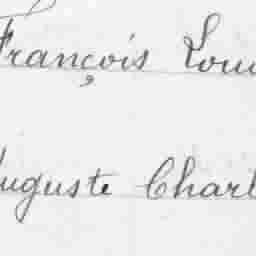 François Loui
Auguste Charl